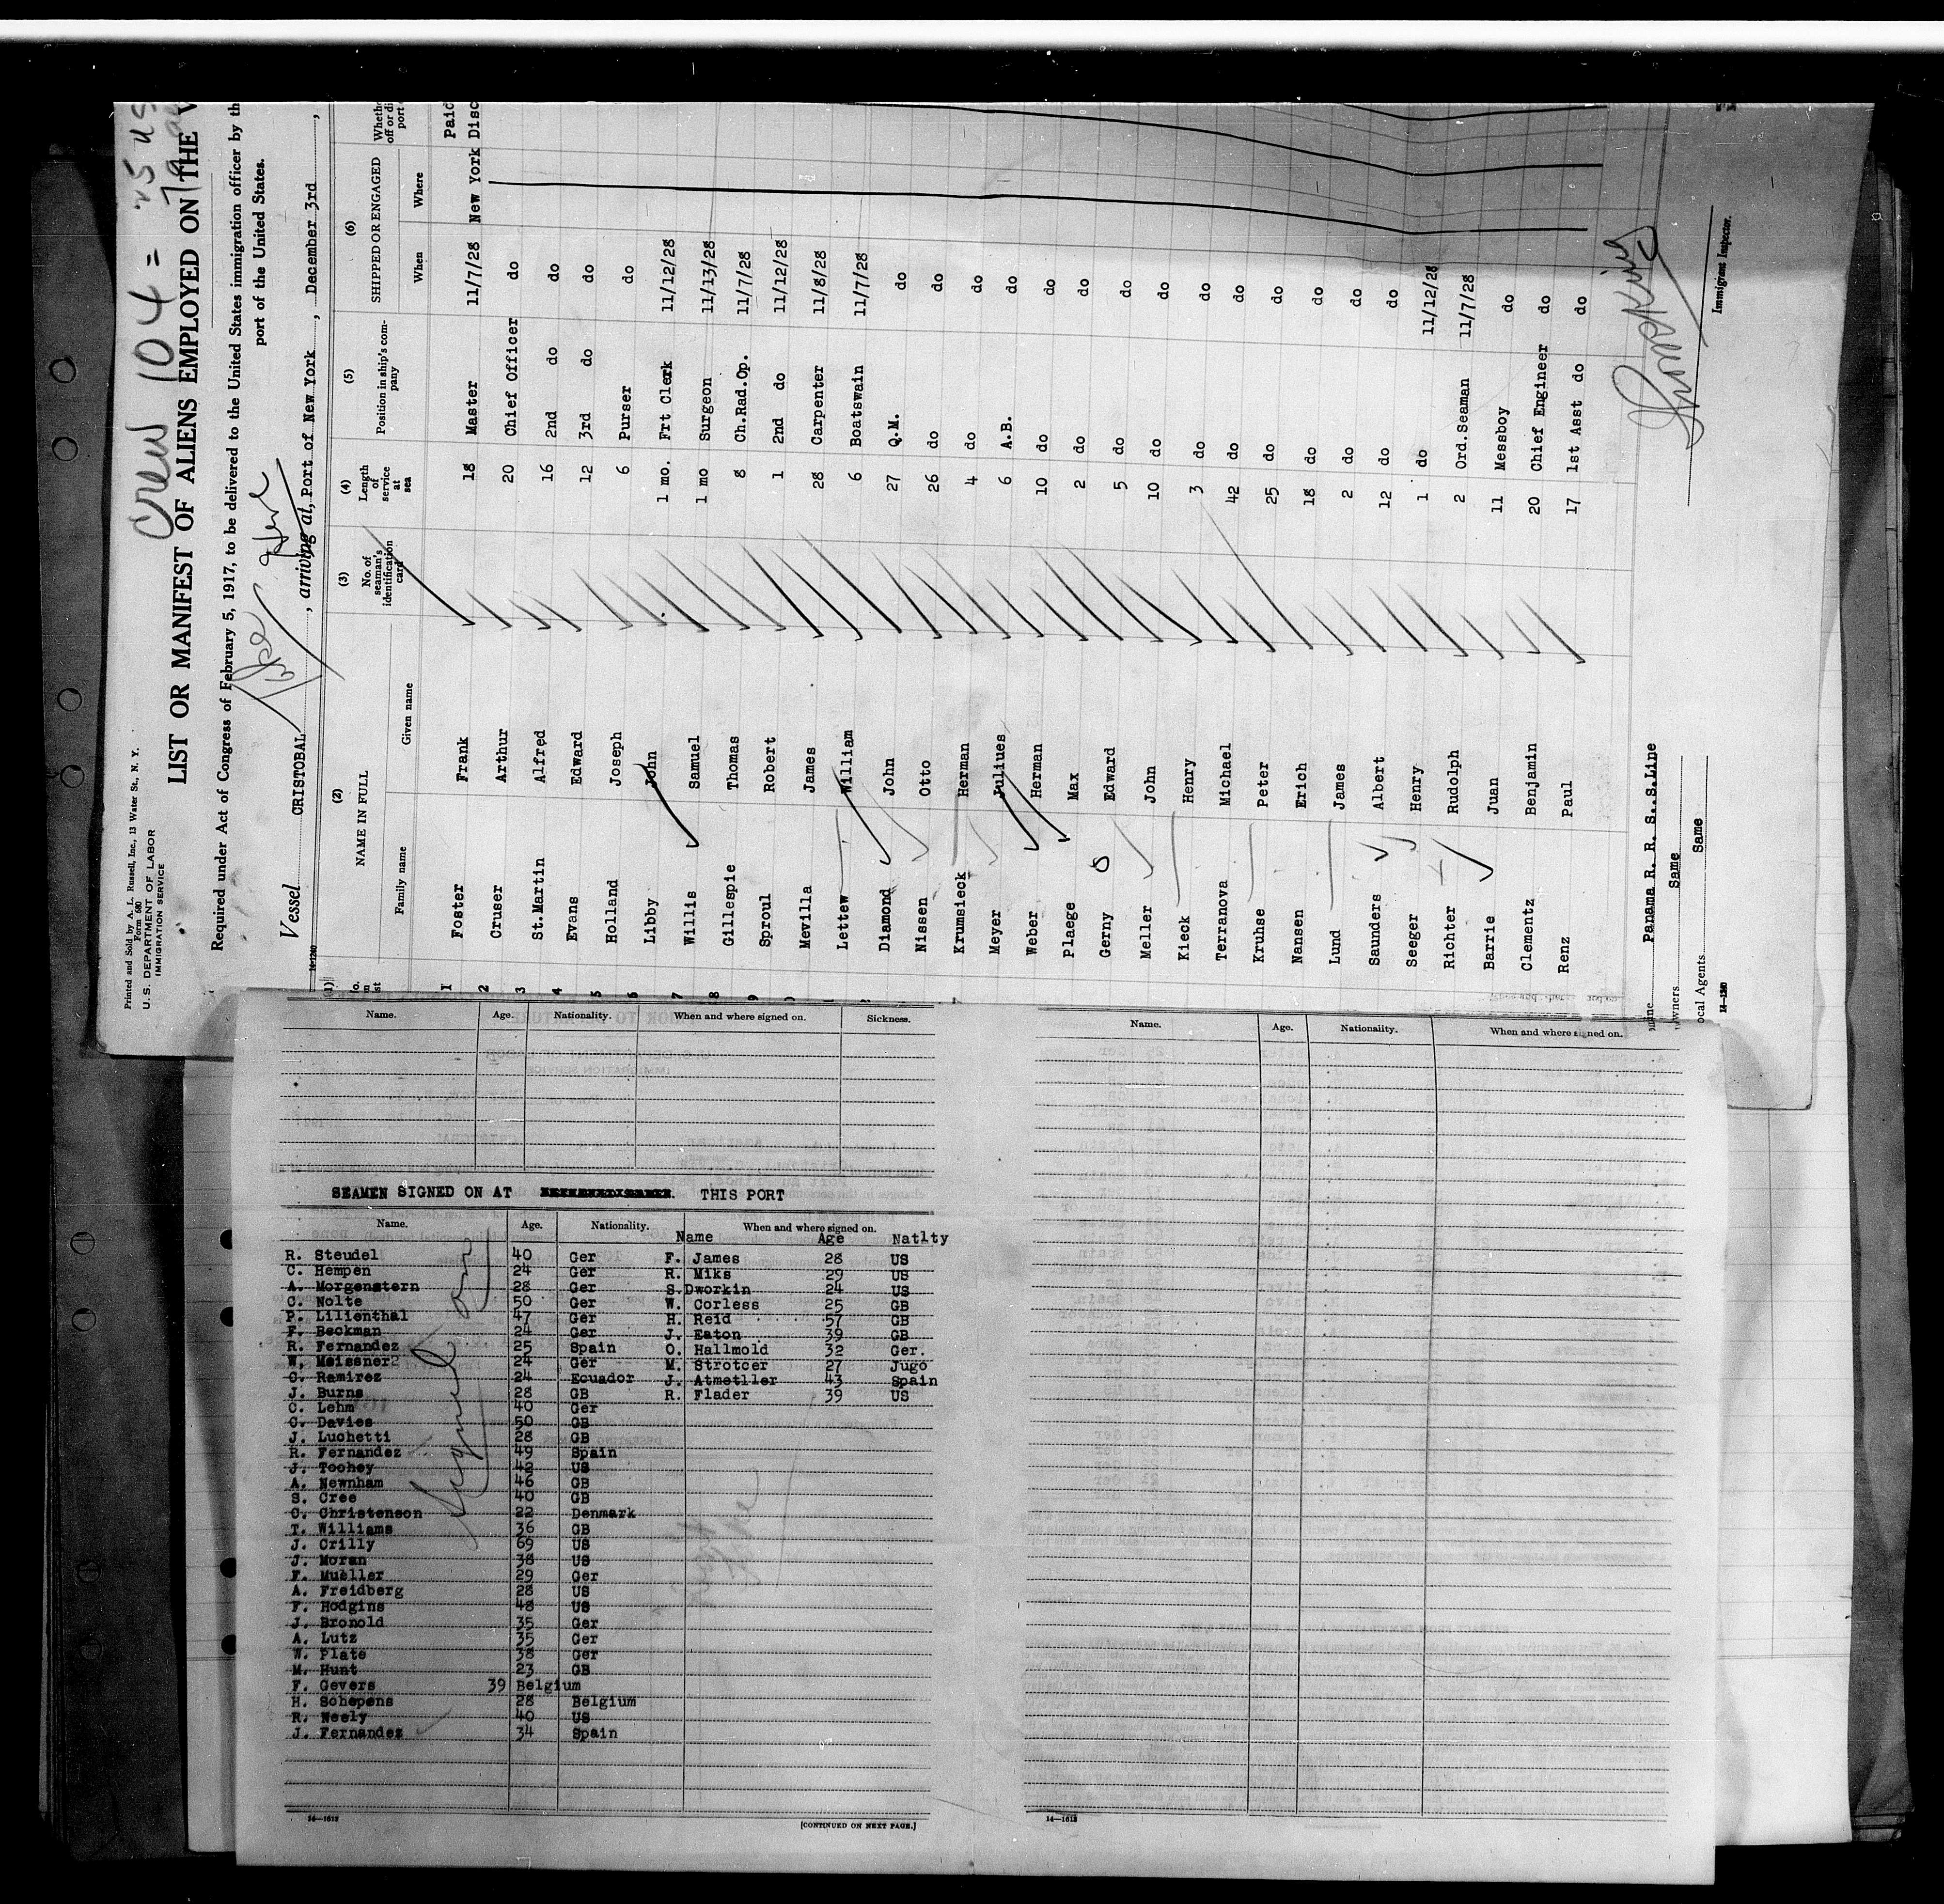 Crew 104 = 25 US
Printed and Sold by A. L. Russell, Inc., 13 Water St., N. Y.
Form 680
U. S. DEPARTMENT OF LABOR
IMMIGRATION SERVICE
LIST OR MANIFEST OF ALIENS EMPLOYED ON THE V
Required under Act of Congress of February 5, 1917, to be delivered to the United States immigration officer by th
port of the United States.
Vessel CRISTOBAL, arriving at, Port of New York, December 3rd,
14-1240
(1) (2) (3) (4) (5) (6)
NAME IN FULL
Family name Given name
No. of seaman's identification card
Length of service at sea
Position in ship's company
SHIPPED OR ENGAGED
When Where
1 Foster Frank 18 Master 11/7/28 New York Disc
Paid
2 Cruser Arthur 20 Chief Officer do
3 St.Martin Alfred 16 2nd do do
4 Evans Edward 12 3rd do do
5 Holland Joseph 6 Purser do
6 Libby John 1 mo. Frt Clerk 11/12/28
7 Willis Samuel 1 mo Surgeon 11/13/28
8 Gillespie Thomas 8 Ch.Rad.Op. 11/7/28
9 Sproul Robert 1 2nd do 11/12/28
Mevilla James 28 Carpenter 11/8/28
Lettew William 6 Boatswain 11/7/28
Diamond John 27 Q.M. do
Nissen Otto 26 do do
Krumsieck Herman 4 do do
Meyer Juliues 6 A.B. do
Weber Herman 10 do do
Plaege Max 2 do do
Gerny Edward 5 do do
Meller John 10 do do
Kieck Henry 3 do do
Terranova Michael 42 do do
Kruhse Peter 25 do do
Nansen Erich 18 do do
Lund James 2 do do
Saunders Albert 12 do do
Seeger Henry 1 do 11/12/28
Richter Rudolph 2 Ord.Seaman 11/7/28
Barrie Juan 11 Messboy do
Clementz Benjamin 20 Chief Engineer do
Renz Paul 17 1st Asst do do
Panama R. R. S..S.Line
wners Same
ocal Agents Same
Immigrant Inspector.
Name. Age. Nationality. When and where signed on. Sickness.
Name. Age. Nationality. When and where signed on.
SEAMEN SIGNED ON AT THIS PORT
Name. Age. Nationality. When and where signed on.
Name Age Natlty
R. Steudel 40 Ger F. James 28 US
C. Hempen 24 Ger R. Miks 29 US
A. Morgenstern 28 Ger S.Dworkin 24 US
C. Nolte 50 Ger W. Corless 25 GB
P. Lilienthal 47 Ger H. Reid 57 GB
F. Beckman 24 Ger J. Eaton 39 GB
R. Fernandez 25 Spain O. Hallmold 32 Ger.
W, Meissner2 24 Ger M. Strotcer 27 Jugo
C. Ramirez 24 Ecuador J. Atmetller 43 Spain
J. Burns 28 GB R. Flader 39 US
C. Lehm 40 Ger
C. Davies 50 GB
J. Luchetti 28 GB
R. Fernandez 49 Spain
J. Toohey 42 US
A. Newnham 46 GB
S. Cree 40 GB
C. Christenson 22 Denmark
T. Williams 36 GB
J. Crilly 69 US
J. Moran 38 US
F. Mueller 29 Ger
A. Freidberg 28 US
F. Hodgins 48 US
J. Bronold 35 Ger
A. Lutz 35 Ger
W. Plate 38 Ger
M. Hunt 23 GB
F. Gevers 39 Belgium
H. Schepens 28 Belgium
R. Neely 40 US
J. Fernandez 34 Spain
14—1612
[CONTINUED ON NEXT PAGE.]
14—1612